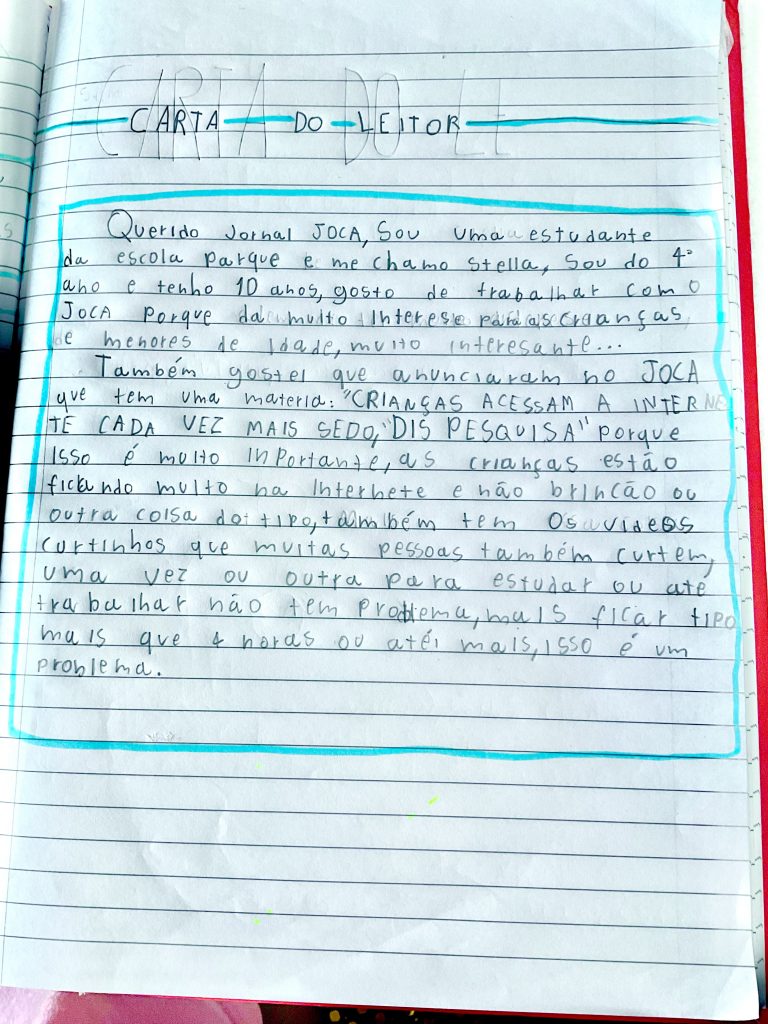 CARTA DO LEITOR
Querido Jornal JOCA, Sou uma estudante
da escola parque e me chamo Stella, Sou do 4º
ano e tenho 10 anos, gosto de trabalhar com o
JOCA Porque da muito Interese para as crianças
de menores de Idade, muito interesante...
Também gostei que anunciaram no JOCA
que tem uma materia: "CRIANÇAS ACESSAM A INTERNE
TE CADA VEZ MAIS SEDO, "DIS PESQUISA" porque
Isso é muito Inportante, as crianças estão
ficando muito na Internete e não brincão ou
outra coisa do tipo, também tem Os videos
curtinhos que muitas pessoas também curtem,
uma vez ou outra para estudar ou até
trabalhar não tem problema, mais ficar tipo
mais que 4 horas ou até mais, isso é um
problema.